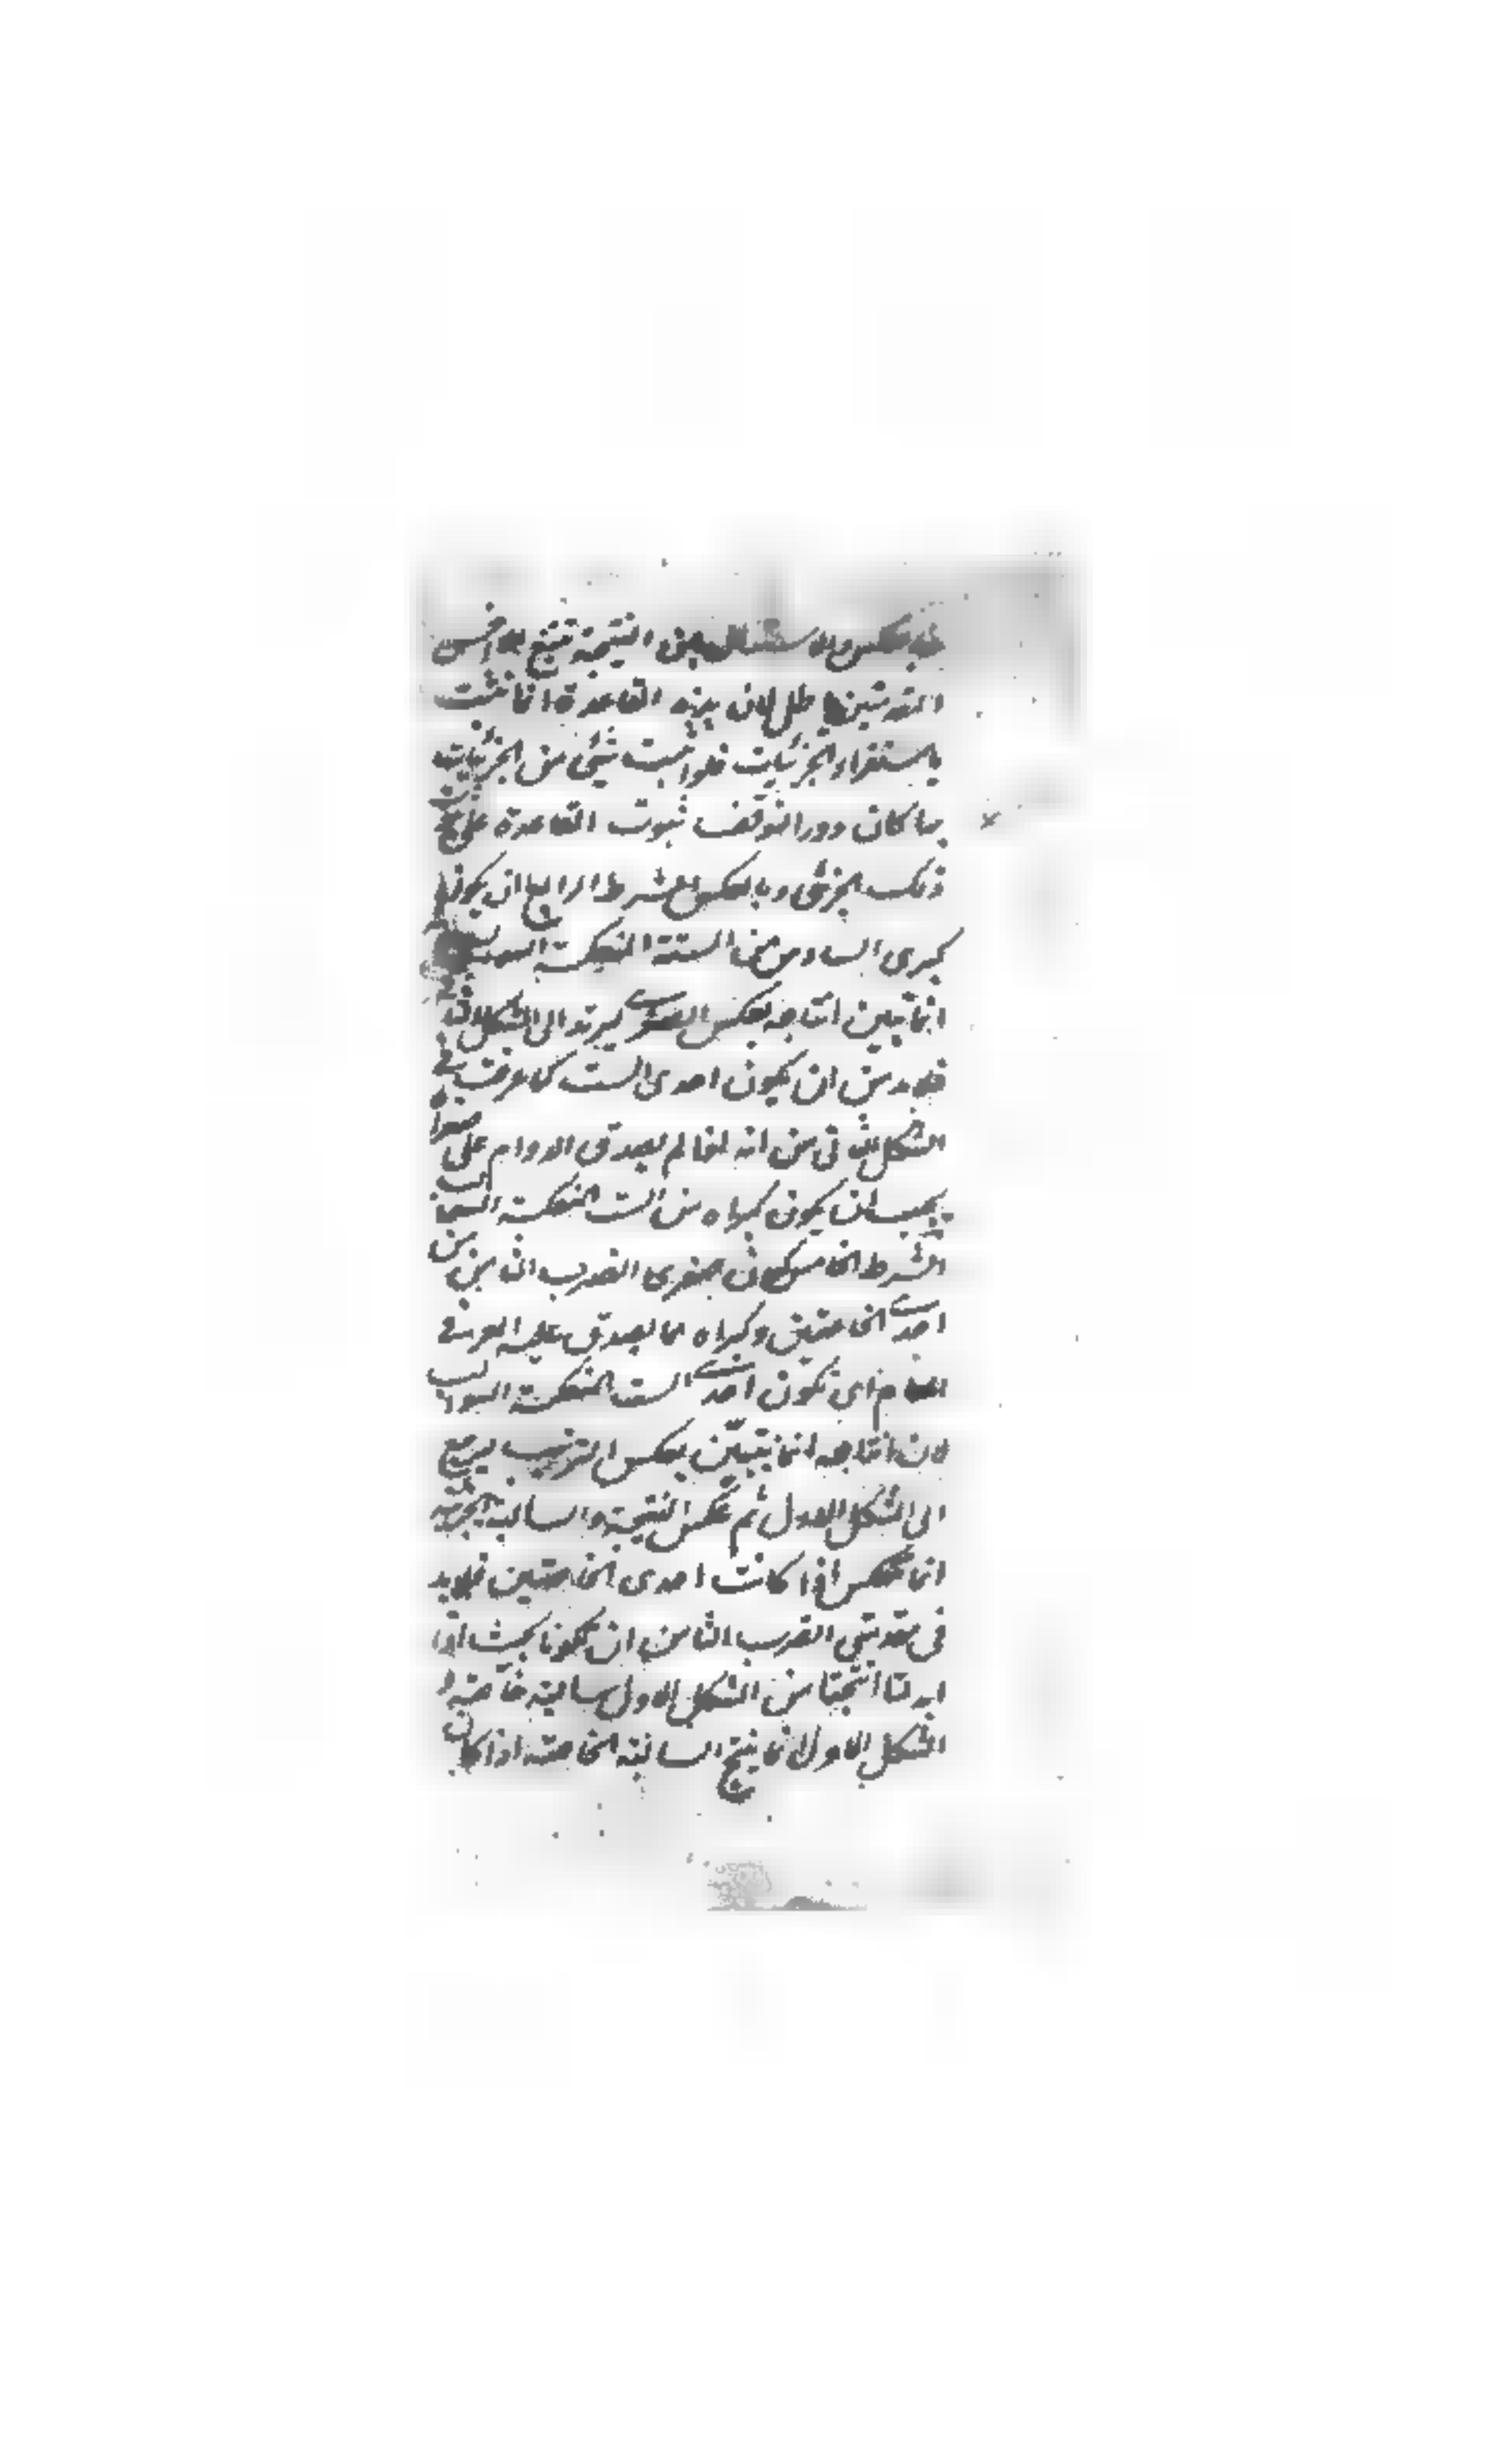 فلا تنعكس والاستدلال بان النتيجة تتبع الاخس
المقدمتين باطل لان هذه القاعدة انما تثبت
باستقراء الجزئيات فلو اثبت شيئ من الجزئيات
بها كان دورا لتوقف ثبوت القاعدة على ثبوت
ذلك الجزئى وبالعكس الشرط الرابع ان يكون
كبرى السادس من الستة المنعكسة السوالب
انما تبين انتاجه بعكس الصغرى ليرتد الى الشكل الثانى
فلابد من ان يكون احدى الست كما عرفت فى
الشكل الثانى من انه اذا لم يصدق الدوام على صغراه
يجب ان يكون كبراه من الست المنعكسة السوالب
الشرط الخامس كون صغرى الضرب الثامن من
احدى الخاصتين وكبراه مما يصدق عليه العرفى
العام اى تكون احدى الست المنعكسة السوالب
لان انتاجه انما يتبين بعكس الترتيب ليرجع
الى الشكل الاول ثم عكس النتيجة والسالبة الجزئية
انما تنعكس اذا كانت احدى الخاصتين فلابد
فى مقدمتى الضرب الثامن ان تكونا بحيث اذا
ابدلتا انتجتا من الشكل الاول سالبة خاصة و
الشكل الاول انما ينتج السالبة الخاصة اذا كان